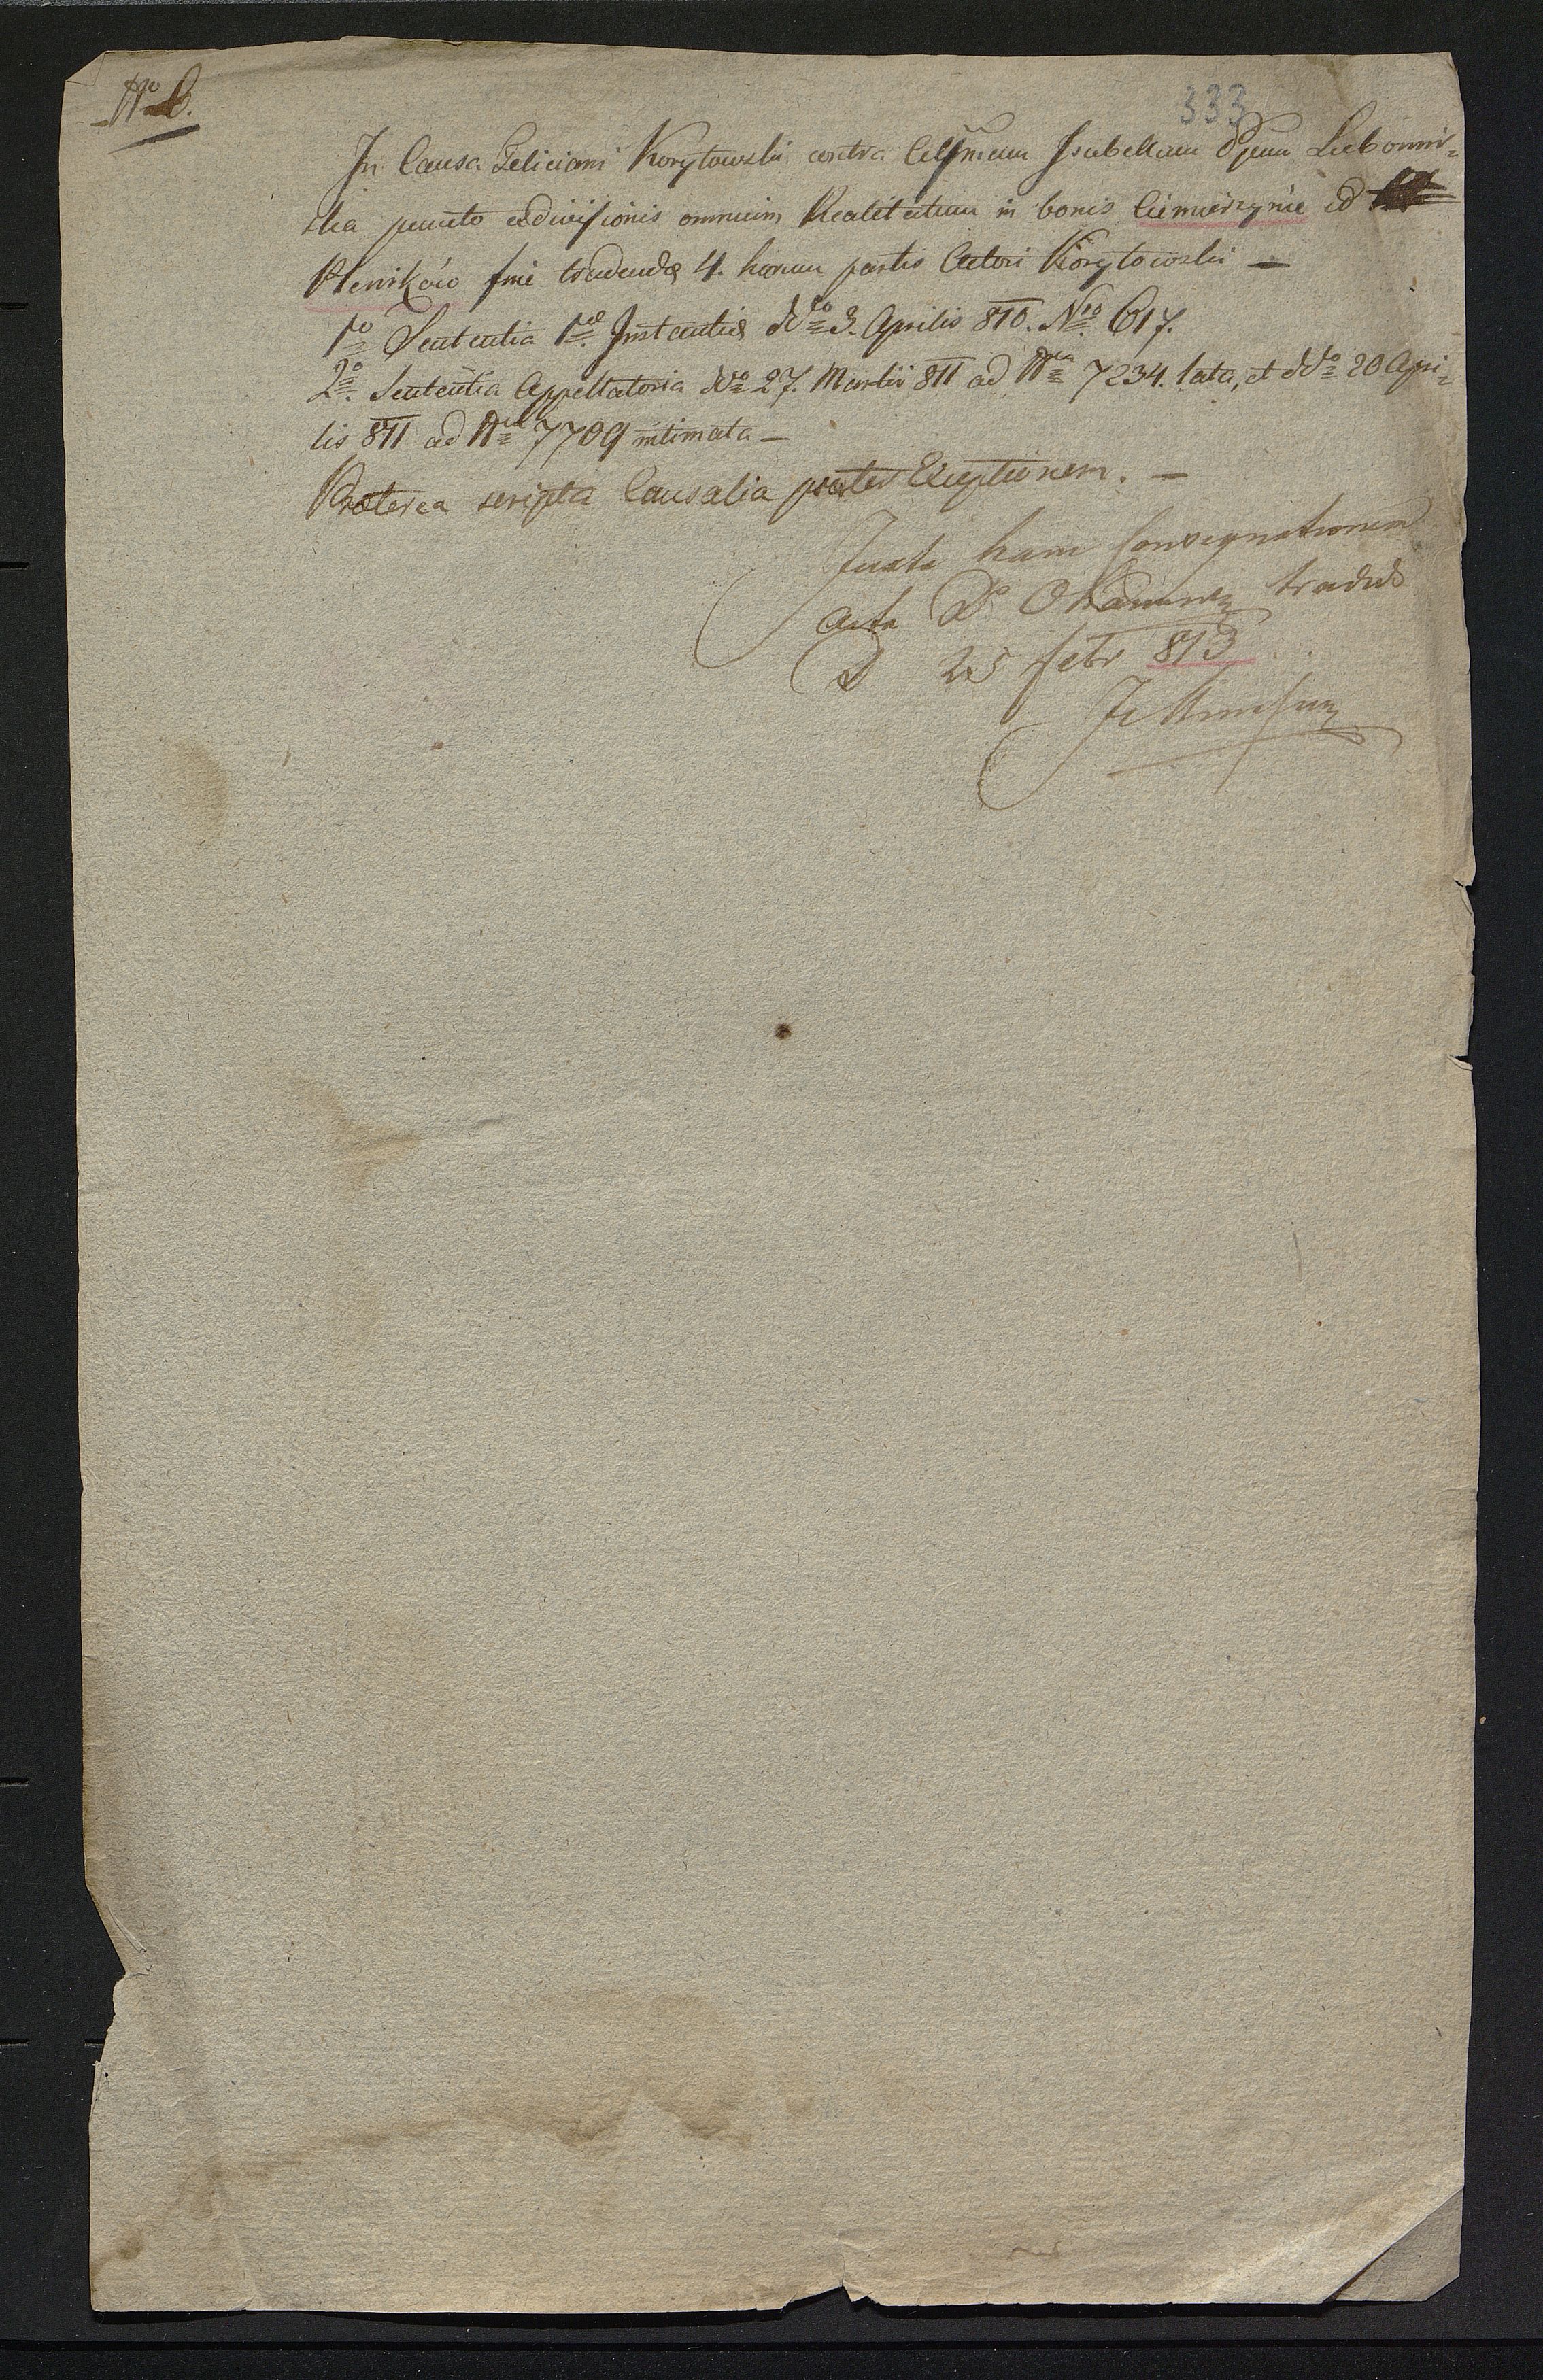 Nro
333
In Causa Feliciani Korytowski contra Celssmam Isabellam Ppem Lubomir=
ska puncto exdivisionis omnium Realitatum in bonis Ciemierzynie et
Wieńków fine tradendæ 4. harum partis Actori Korytowski —
1o Sententia 1æ Instantiæ ddto 3. Aprilis 810. Nro 617.
2o. Sententia Appellatoria ddto 27. Martii 811 ad Nrum 7234. lata, et ddto 20 Apri=
lis 811 ad Nrum 7709 intimata —
Præterea scripta Causalia præter Exceptionem. —
Juxta hanc Consignationem
acta Do tradidi
D 25 febr 813